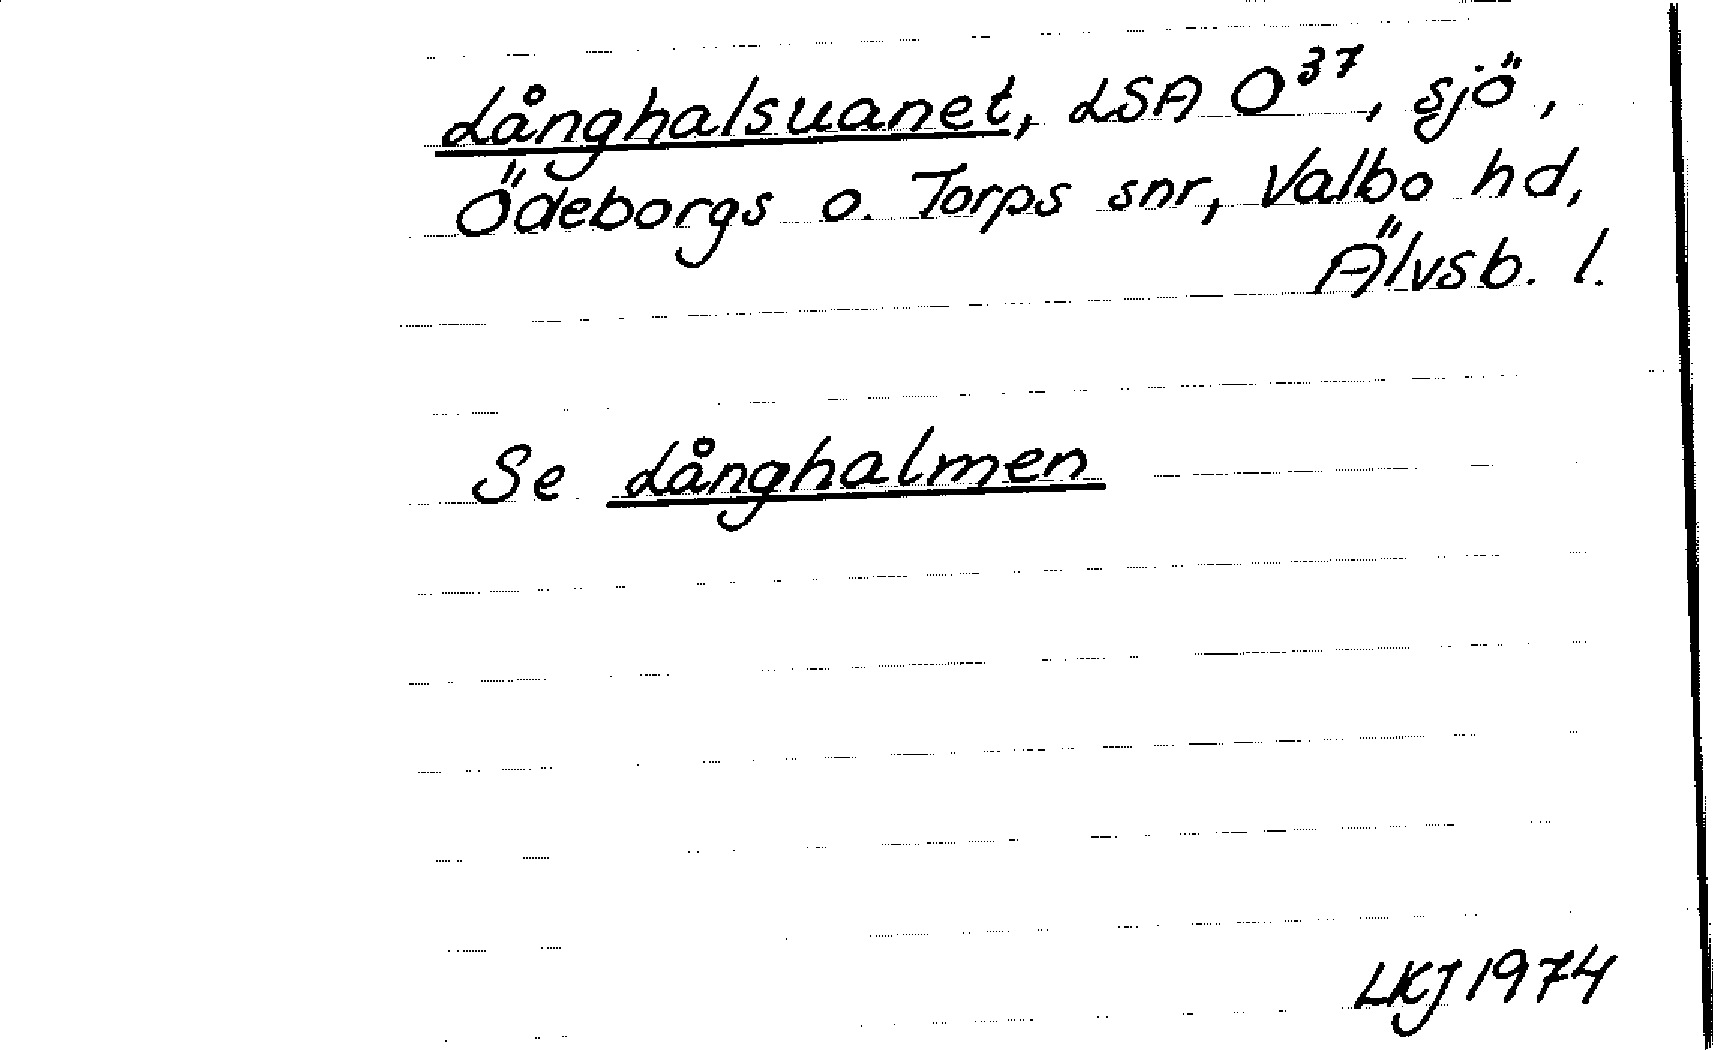 Långhalsuanet, LSA O³⁷, sjö,
Ödeborgs o. Torps snr, Valbo hd,
Älvsb. l.
Se Långhalmen
LKJ 1974